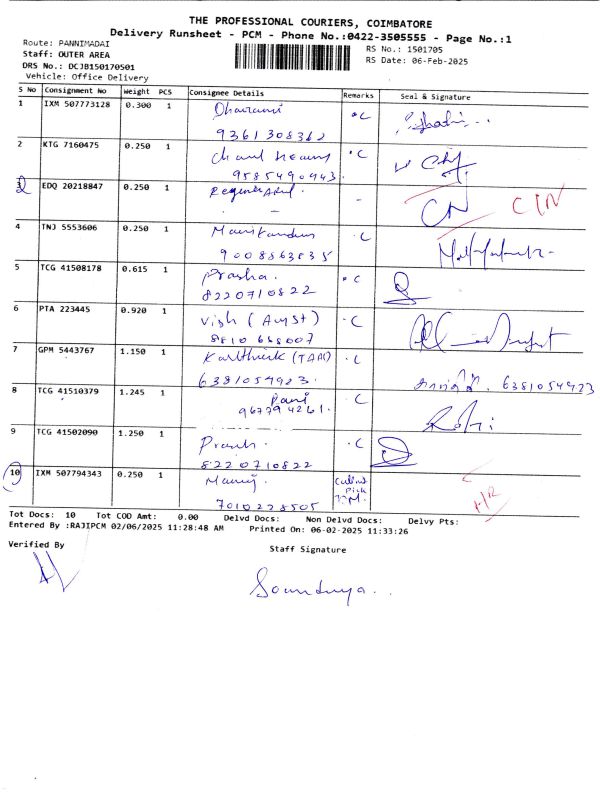 THE PROFESSIONAL COURIERS, COIMBATORE
Delivery Runsheet - PCM - Phone No.:0422-3505555 - Page No.:1
Route: PANNIMADAI
RS No.: 1501705
Staff: OUTER AREA
RS Date: 06-Feb-2025
DRS No.: DCJB150170501
Vehicle: Office Delivery
S No Consignment No Weight PCS Consignee Details Remarks Seal & Signature
1 IXM 507773128 0.300 1 C
9361308362
2 KTG 7160475 0.250 1 C
9585490943
3 EDQ 20218847 0.250 1 - CN CIN
- -
4 TNJ 5553606 0.250 1 C
9008863835
5 TCG 41508178 0.615 1 Prasha. C
8220710822
6 PTA 223445 0.920 1 C
8810688007
7 GPM 5443767 1.150 1 Karthick C
6381054923. 6381054923
8 TCG 41510379 1.245 1 Rani C
9677942261.
9 TCG 41502090 1.250 1 C
8220710822
10 IXM 507794343 0.250 1 Manoj Pick
7010228505
Tot Docs: 10 Tot COD Amt: 0.00 Delvd Docs: Non Delvd Docs: Delvy Pts:
Entered By :RAJIPCM 02/06/2025 11:28:48 AM Printed On: 06-02-2025 11:33:26
Verified By
Staff Signature
Soundurya..